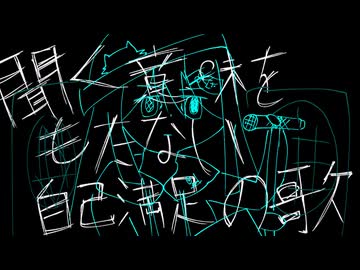 聞く意味を
もたない
自己満足の歌